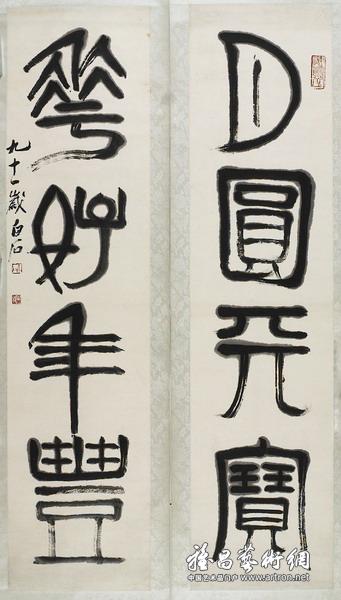 月圓天寶
華好年豐
九十一歲白石
雅昌藝術網
中国艺术品门户 www.artron.net